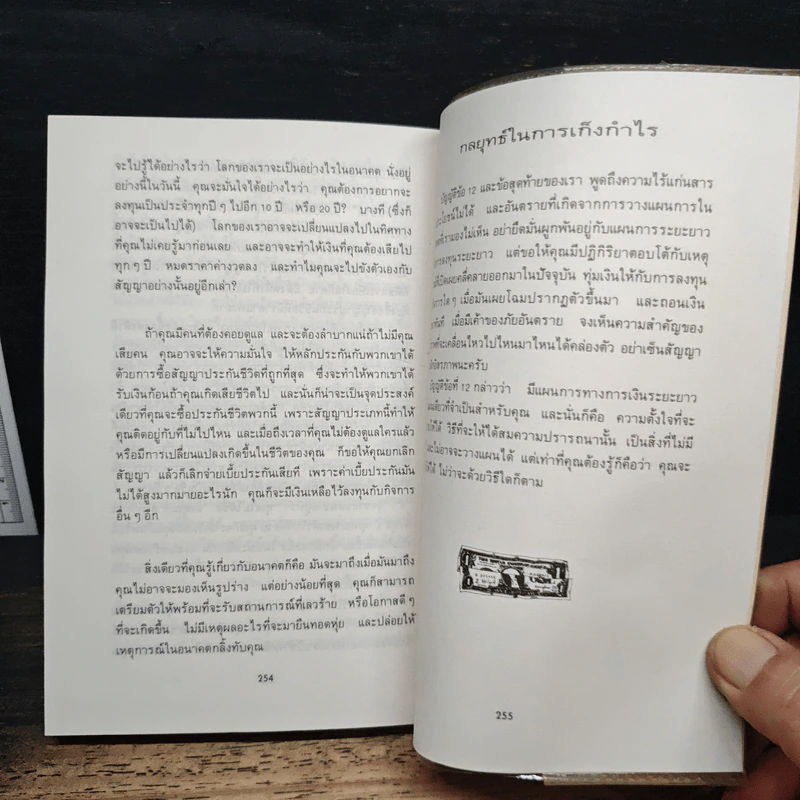 จะไปรู้ได้อย่างไรว่า โลกของเราจะเป็นอย่างไรในอนาคต นั่งอยู่
อย่างนี้ในวันนี้ คุณจะมั่นใจได้อย่างไรว่า คุณต้องการอยากจะ
ลงทุนเป็นประจำทุกปี ๆ ไปอีก 10 ปี หรือ 20 ปี? บางที (ซึ่งก็
อาจจะเป็นไปได้) โลกของเราอาจจะเปลี่ยนแปลงไปในทิศทาง
ที่คุณไม่เคยรู้มาก่อนเลย และอาจจะทำให้เงินที่คุณต้องเสียไป
ทุก ๆ ปี หมดราคาค่างวดลง และทำไมคุณจะไปขังตัวเองกับ
สัญญาอย่างนั้นอยู่อีกเล่า?
ถ้าคุณมีคนที่ต้องคอยดูแล และจะต้องลำบากแน่ถ้าไม่มีคุณ
เสียคน คุณอาจจะให้ความมั่นใจ ให้หลักประกันกับพวกเขาได้
ด้วยการซื้อสัญญาประกันชีวิตที่ถูกที่สุด ซึ่งจะทำให้พวกเขาได้
รับเงินก้อนถ้าคุณเกิดเสียชีวิตไป และนั่นก็น่าจะเป็นจุดประสงค์
เดียวที่คุณจะซื้อประกันชีวิตพวกนี้ เพราะสัญญาประเภทนี้ทำให้
คุณติดอยู่กับที่ไม่ไปไหน และเมื่อถึงเวลาที่คุณไม่ต้องดูแลใครแล้ว
หรือมีการเปลี่ยนแปลงเกิดขึ้นในชีวิตของคุณ ก็ขอให้คุณยกเลิก
สัญญา แล้วก็เลิกจ่ายเบี้ยประกันเสียที เพราะค่าเบี้ยประกันมัน
ไม่ได้สูงมากมายอะไรนัก คุณก็จะมีเงินเหลือไว้ลงทุนกับกิจการ
อื่น ๆ อีก
สิ่งเดียวที่คุณรู้เกี่ยวกับอนาคตก็คือ มันจะมาถึงเมื่อมันมาถึง
คุณไม่อาจจะมองเห็นรูปร่าง แต่อย่างน้อยที่สุด คุณก็สามารถ
เตรียมตัวให้พร้อมที่จะรับสถานการณ์ที่เลวร้าย หรือโอกาสดี ๆ
ที่จะเกิดขึ้น ไม่มีเหตุผลอะไรที่จะมายืนทอดหุ่ย และปล่อยให้
เหตุการณ์ในอนาคตกลิ้งทับคุณ
254
กลยุทธ์ในการเก็งกำไร
บัญญัติข้อ 12 และข้อสุดท้ายของเรา พูดถึงความไร้แก่นสาร
และอันตรายที่เกิดจากการวางแผนการใน
ที่เรามองไม่เห็น อย่ายึดมั่นผูกพันอยู่กับแผนการระยะยาว
การลงทุนระยะยาว แต่ขอให้คุณมีปฏิกิริยาตอบโต้กับเหตุ
เปิดเผยคลี่คลายออกมาในปัจจุบัน ทุ่มเงินให้กับการลงทุน
ใด ๆ เมื่อมันเผยโฉมปรากฏตัวขึ้นมา และถอนเงิน
ทันที เมื่อมีเค้าของภัยอันตราย จงเห็นความสำคัญของ
ที่จะเคลื่อนไหวไปไหนมาไหนได้คล่องตัว อย่าเซ็นสัญญา
นะครับ
บัญญัติข้อที่ 12 กล่าวว่า มีแผนการทางการเงินระยะยาว
เดียวที่จำเป็นสำหรับคุณ และนั่นก็คือ ความตั้งใจที่จะ
วิธีที่จะให้ได้สมความปรารถนานั้น เป็นสิ่งที่ไม่มี
และไม่อาจจะวางแผนได้ แต่เท่าที่คุณต้องรู้ก็คือว่า คุณจะ
ไม่ว่าจะด้วยวิธีใดก็ตาม
255